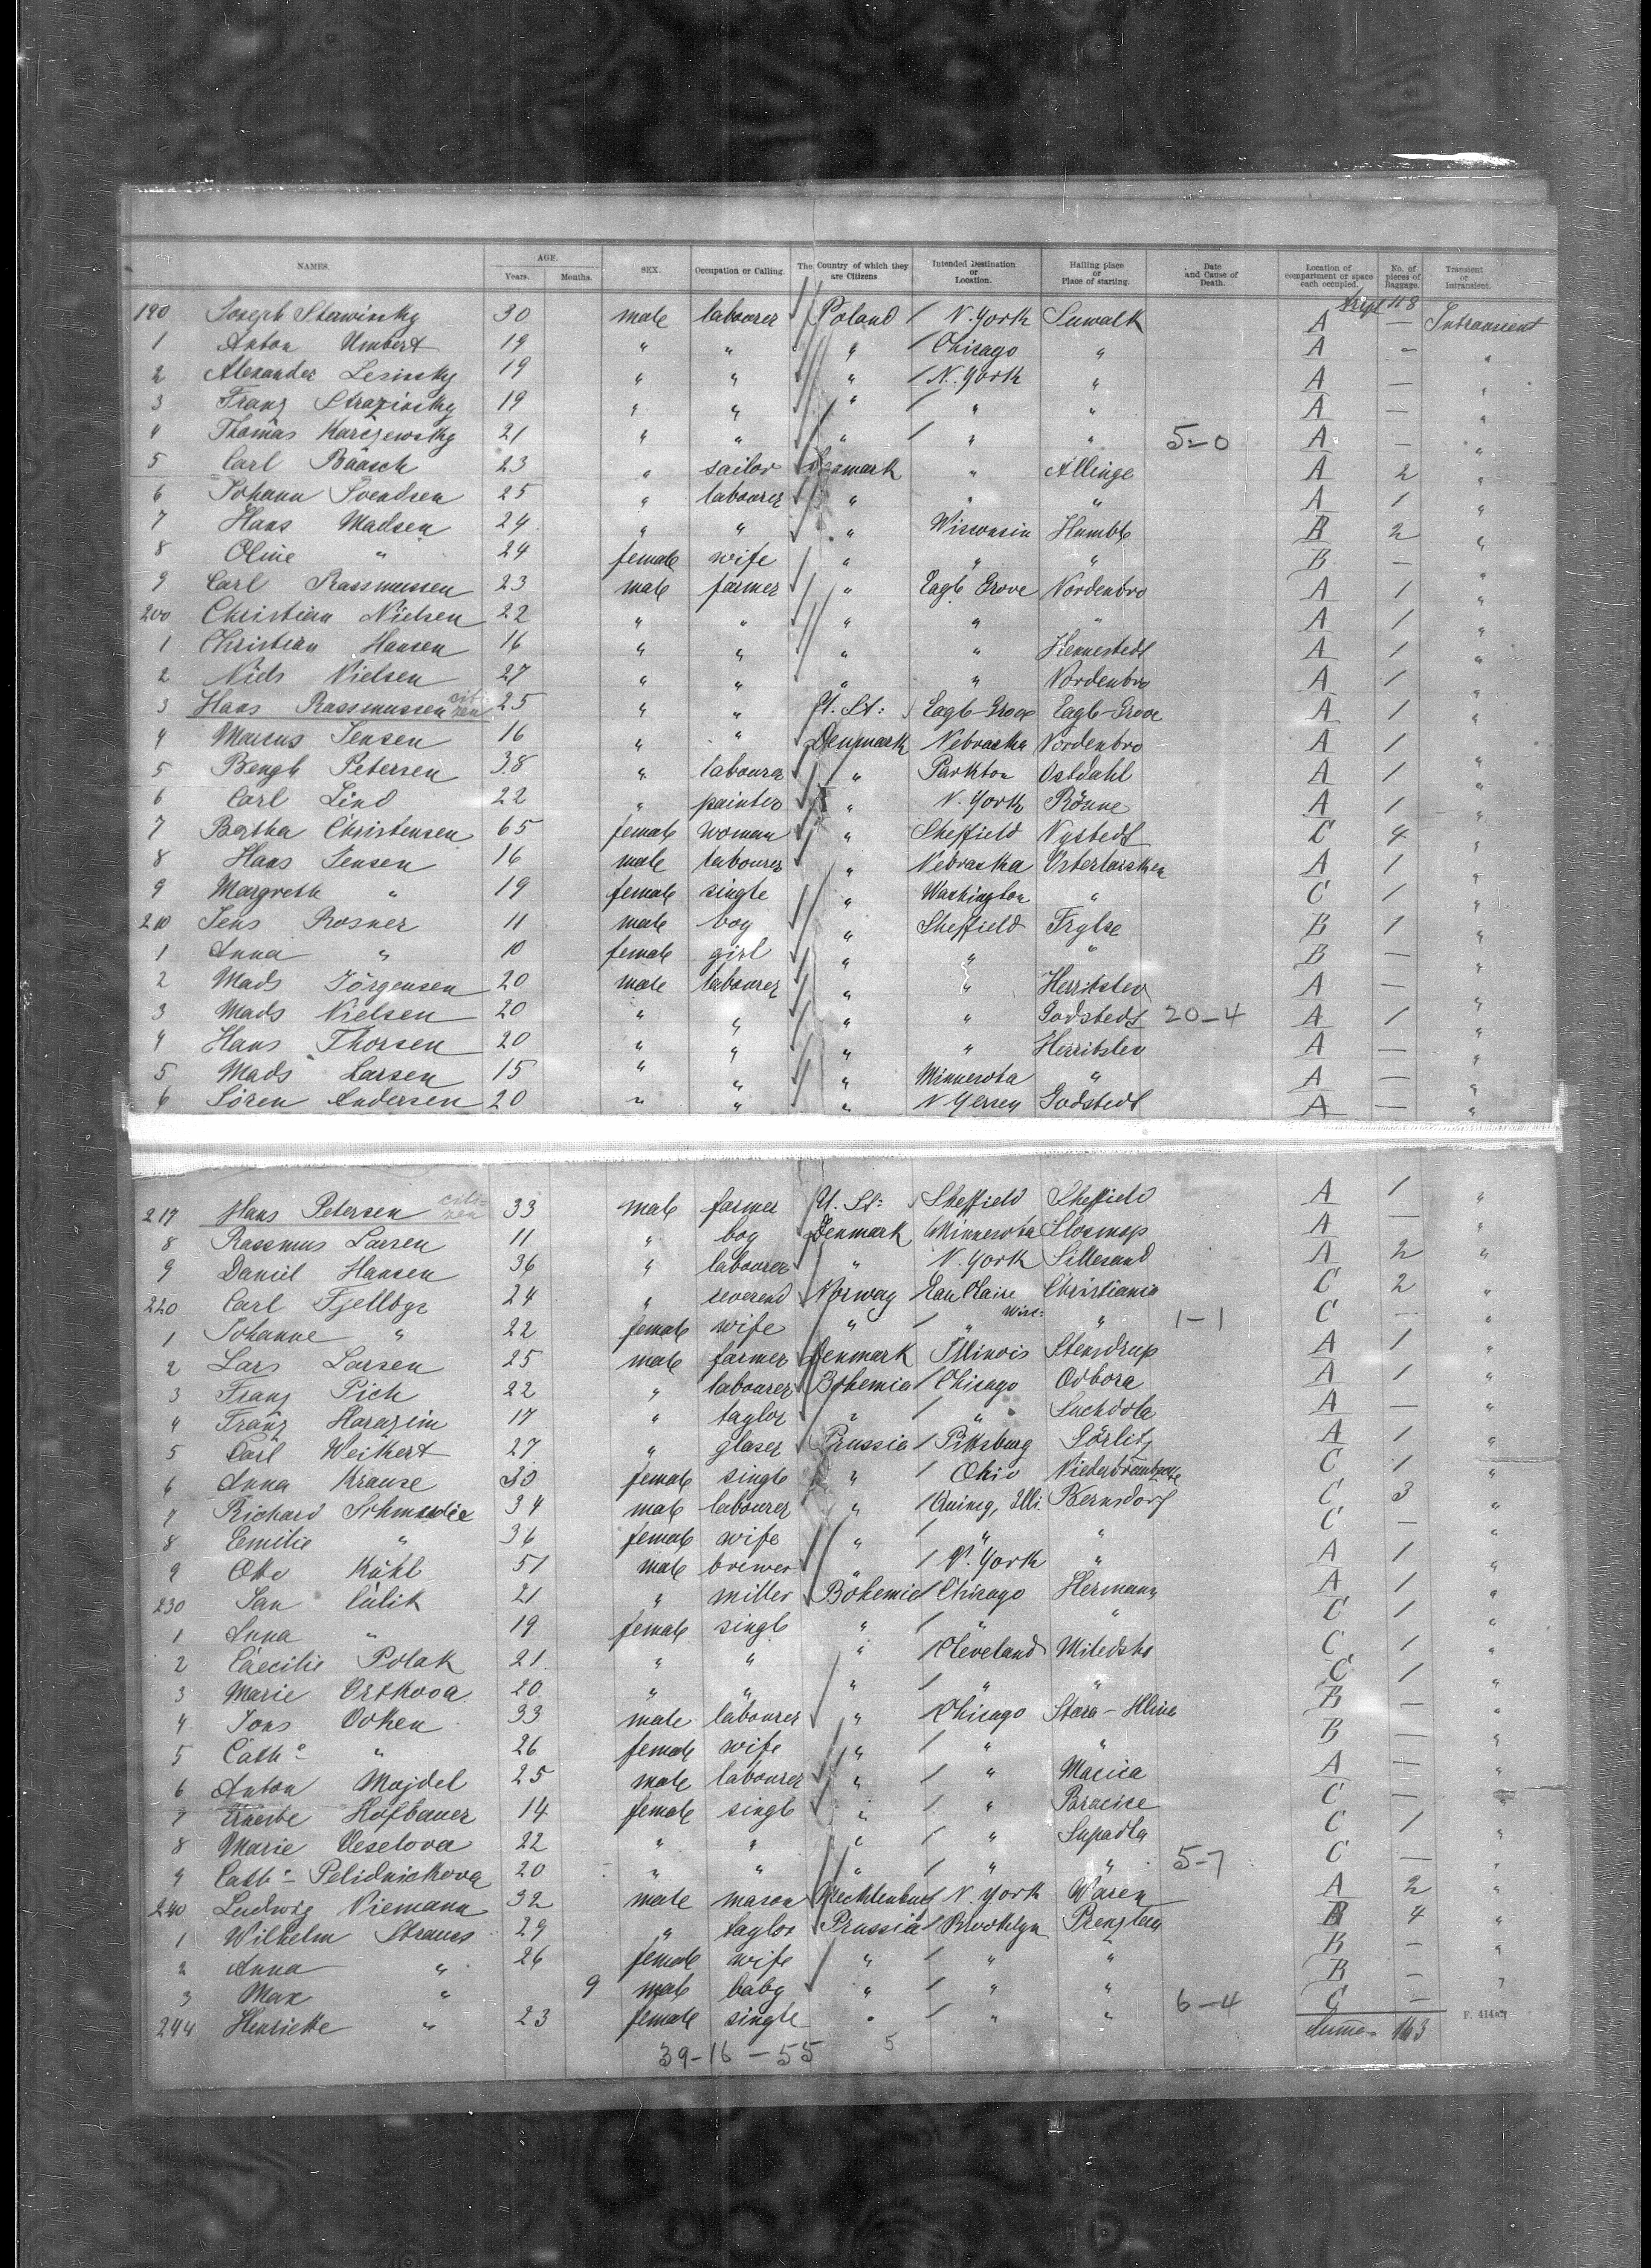 NAMES. AGE. Years. Months. SEX. Occupation or Calling. The Country of which they are Citizens Intended Destination or Location. Hailing place or Place of starting. Date and Cause of Death. Location of compartment or space each occupied. No. of pieces of Baggage. Transient or Intransient.
118
190 Joseph Stawinsky 30 male labourer Poland N. York Suwalk A — Intransient
1 Anton Umbert 19 " " " Chicago " A — "
2 Alexander Lesinsky 19 " " " N. York " A — "
3 Franz Strazinsky 19 " " " " " A — "
4 Thomas Karczewsky 21 " " " " " 5-0 A — "
5 Carl Baasch 23 " sailor Denmark " Allinge A 2 "
6 Johann Svendsen 25 " labourer " " " A 1 "
7 Hans Madsen 24 " " " Wisconsin Humble B 2 "
8 Oline " 24 female wife " " " B — "
9 Carl Rassmussen 23 male farmer " Eagle Grove Nordenbro A 1 "
200 Christian Nielsen 22 " " " " " A 1 "
1 Christian Hansen 16 " " " " Hennestedt A 1 "
2 Niels Nielsen 27 " " " " Nordenbro A 1 "
3 Hans Rassmussen citizen 25 " " U. St: Eagle-Grove Eagle-Grove A 1 "
4 Marcus Jensen 16 " " Denmark Nebraska Nordenbro A 1 "
5 Bengh Petersen 38 " labourer " Parkton Ostdahl A 1 "
6 Carl Lind 22 " painter " N. York Rönne A 1 "
7 Bertha Christensen 65 female woman " Sheffield Nystedt C 4 "
8 Hans Jensen 16 male labourer " Nebraska Osterlarsken A 1 "
9 Margreth " 19 female single " Washington " C 1 "
210 Jens Rosner 11 male boy " Sheffield Frylse B 1 "
1 Anna " 10 female girl " " " B — "
2 Mads Jörgensen 20 male labourer " " Herritslev A — "
3 Mads Nielsen 20 " " " " Godstedt 20-4 A 1 "
4 Hans Thorsen 20 " " " " Herritslev A — "
5 Mads Larsen 15 " " " Minnesota " A — "
6 Sören Andersen 20 " " " N. Yersey Godstedt A — "
217 Hans Petersen citizen 33 male farmer U. St: Sheffield Sheffield A 1 "
8 Rassmus Larsen 11 " boy Denmark Minnesota A — "
9 Daniel Hansen 36 " labourer " N. York Lillesand A 2 "
220 Carl Fjellbye 24 " reverend Norway Eau Claire Wisc: Christiania C 2 "
1 Johanne " 22 female wife " " " 1-1 C — "
2 Lars Larsen 25 male farmer Denmark Illinois Stensdrup A 1 "
3 Franz Pich 22 " labourer Bohemia Chicago Odbora A 1 "
4 Franz Harazim 17 " taylor " " Suchdola A — "
5 Carl Weikert 27 " glaser Prussia Pittsburg Görlitz A 1 "
6 Anna Krause 30 female single " Ohio C 1 "
7 Richard 34 male labourer " Quincy, Illi. Bernsdorf C 3 "
8 Emilie " 36 female wife " " " C — "
9 Otto Kühl 51 male brewer " N. York " A 1 "
230 Jan Culik 21 " miller Bohemia Chicago Hermann A 1 "
1 Anna " 19 female single " " " C 1 "
2 Caecilie Polak 21 " " " Cleveland Miledsko C 1 "
3 Marie Ortkova 20 " " " " " C 1 "
4 Jons 33 male labourer " Chicago Stara-Hlina B — "
5 Cath: " 26 female wife " " " B — "
6 Anton Majdel 25 male labourer " " Macica A — "
7 Hofbauer 14 female single " " Bracice C — "
8 Marie Veselova 22 " " " " Supadla C 1 "
9 Cath: Pelidnickova 20 " " " " " 5-7 C — "
240 Ludwig Niemann 32 male mason Mecklenburg N. York Waren A 2 "
1 Wilhelm Straus 29 " taylor Prussia Brooklyn Prenzlau B 4 "
2 Anna " 26 female wife " " " B — "
3 Max " 9 male baby " " " B — "
244 Henriette " 23 female single " " " 6-4 C — "
Summa 163
39-16-55 5